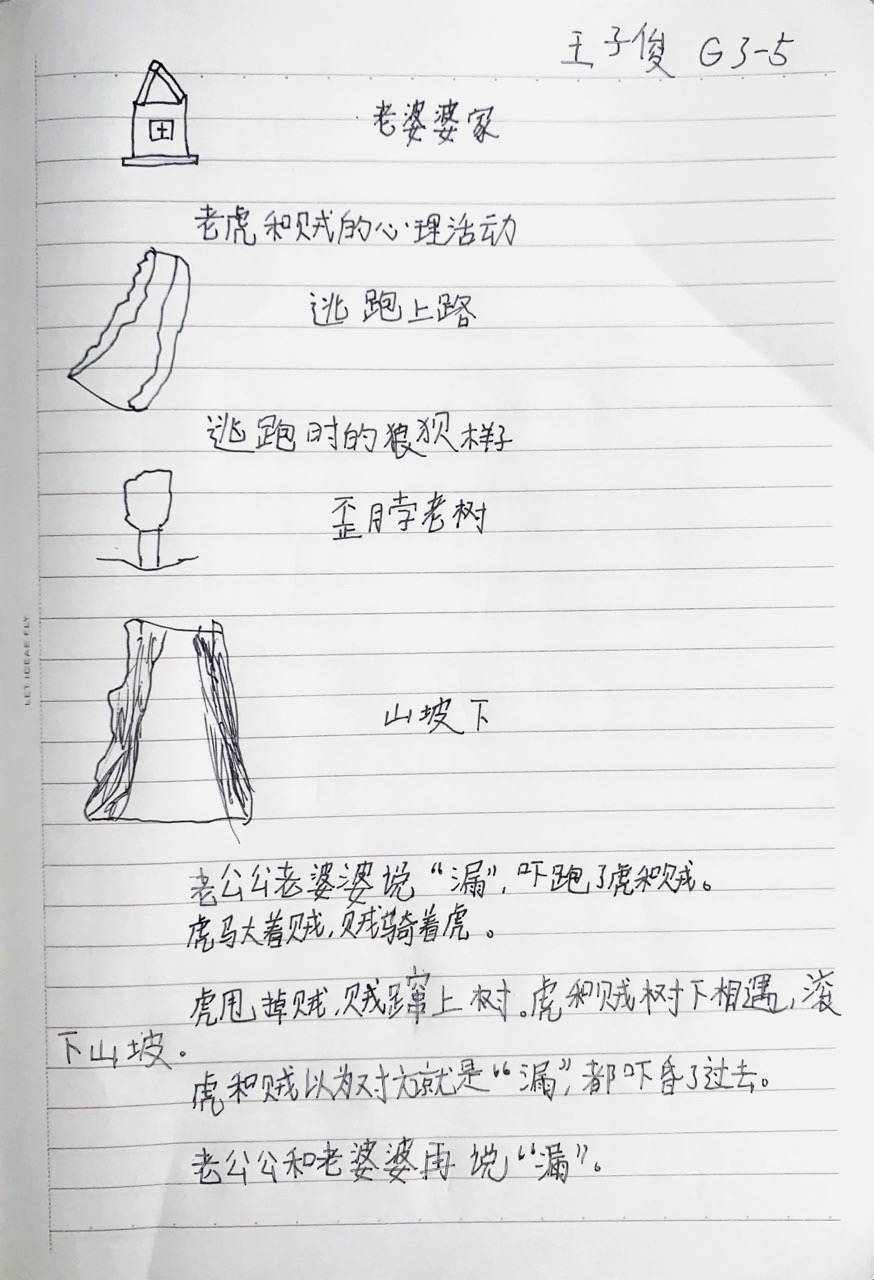 王子俊 G3-5
老婆婆家
老虎和贼的心理活动
逃跑上路
逃跑时的狼狈样子
歪脖老树
山坡下
老公公老婆婆说“漏”,吓跑了虎和贼。
虎驮着贼,贼骑着虎。
虎甩掉贼,贼蹿上树。虎和贼树下相遇,滚
下山坡。
虎和贼以为对方就是“漏”,都吓昏了过去。
老公公和老婆婆再说“漏”。
LET IDEAS FLY